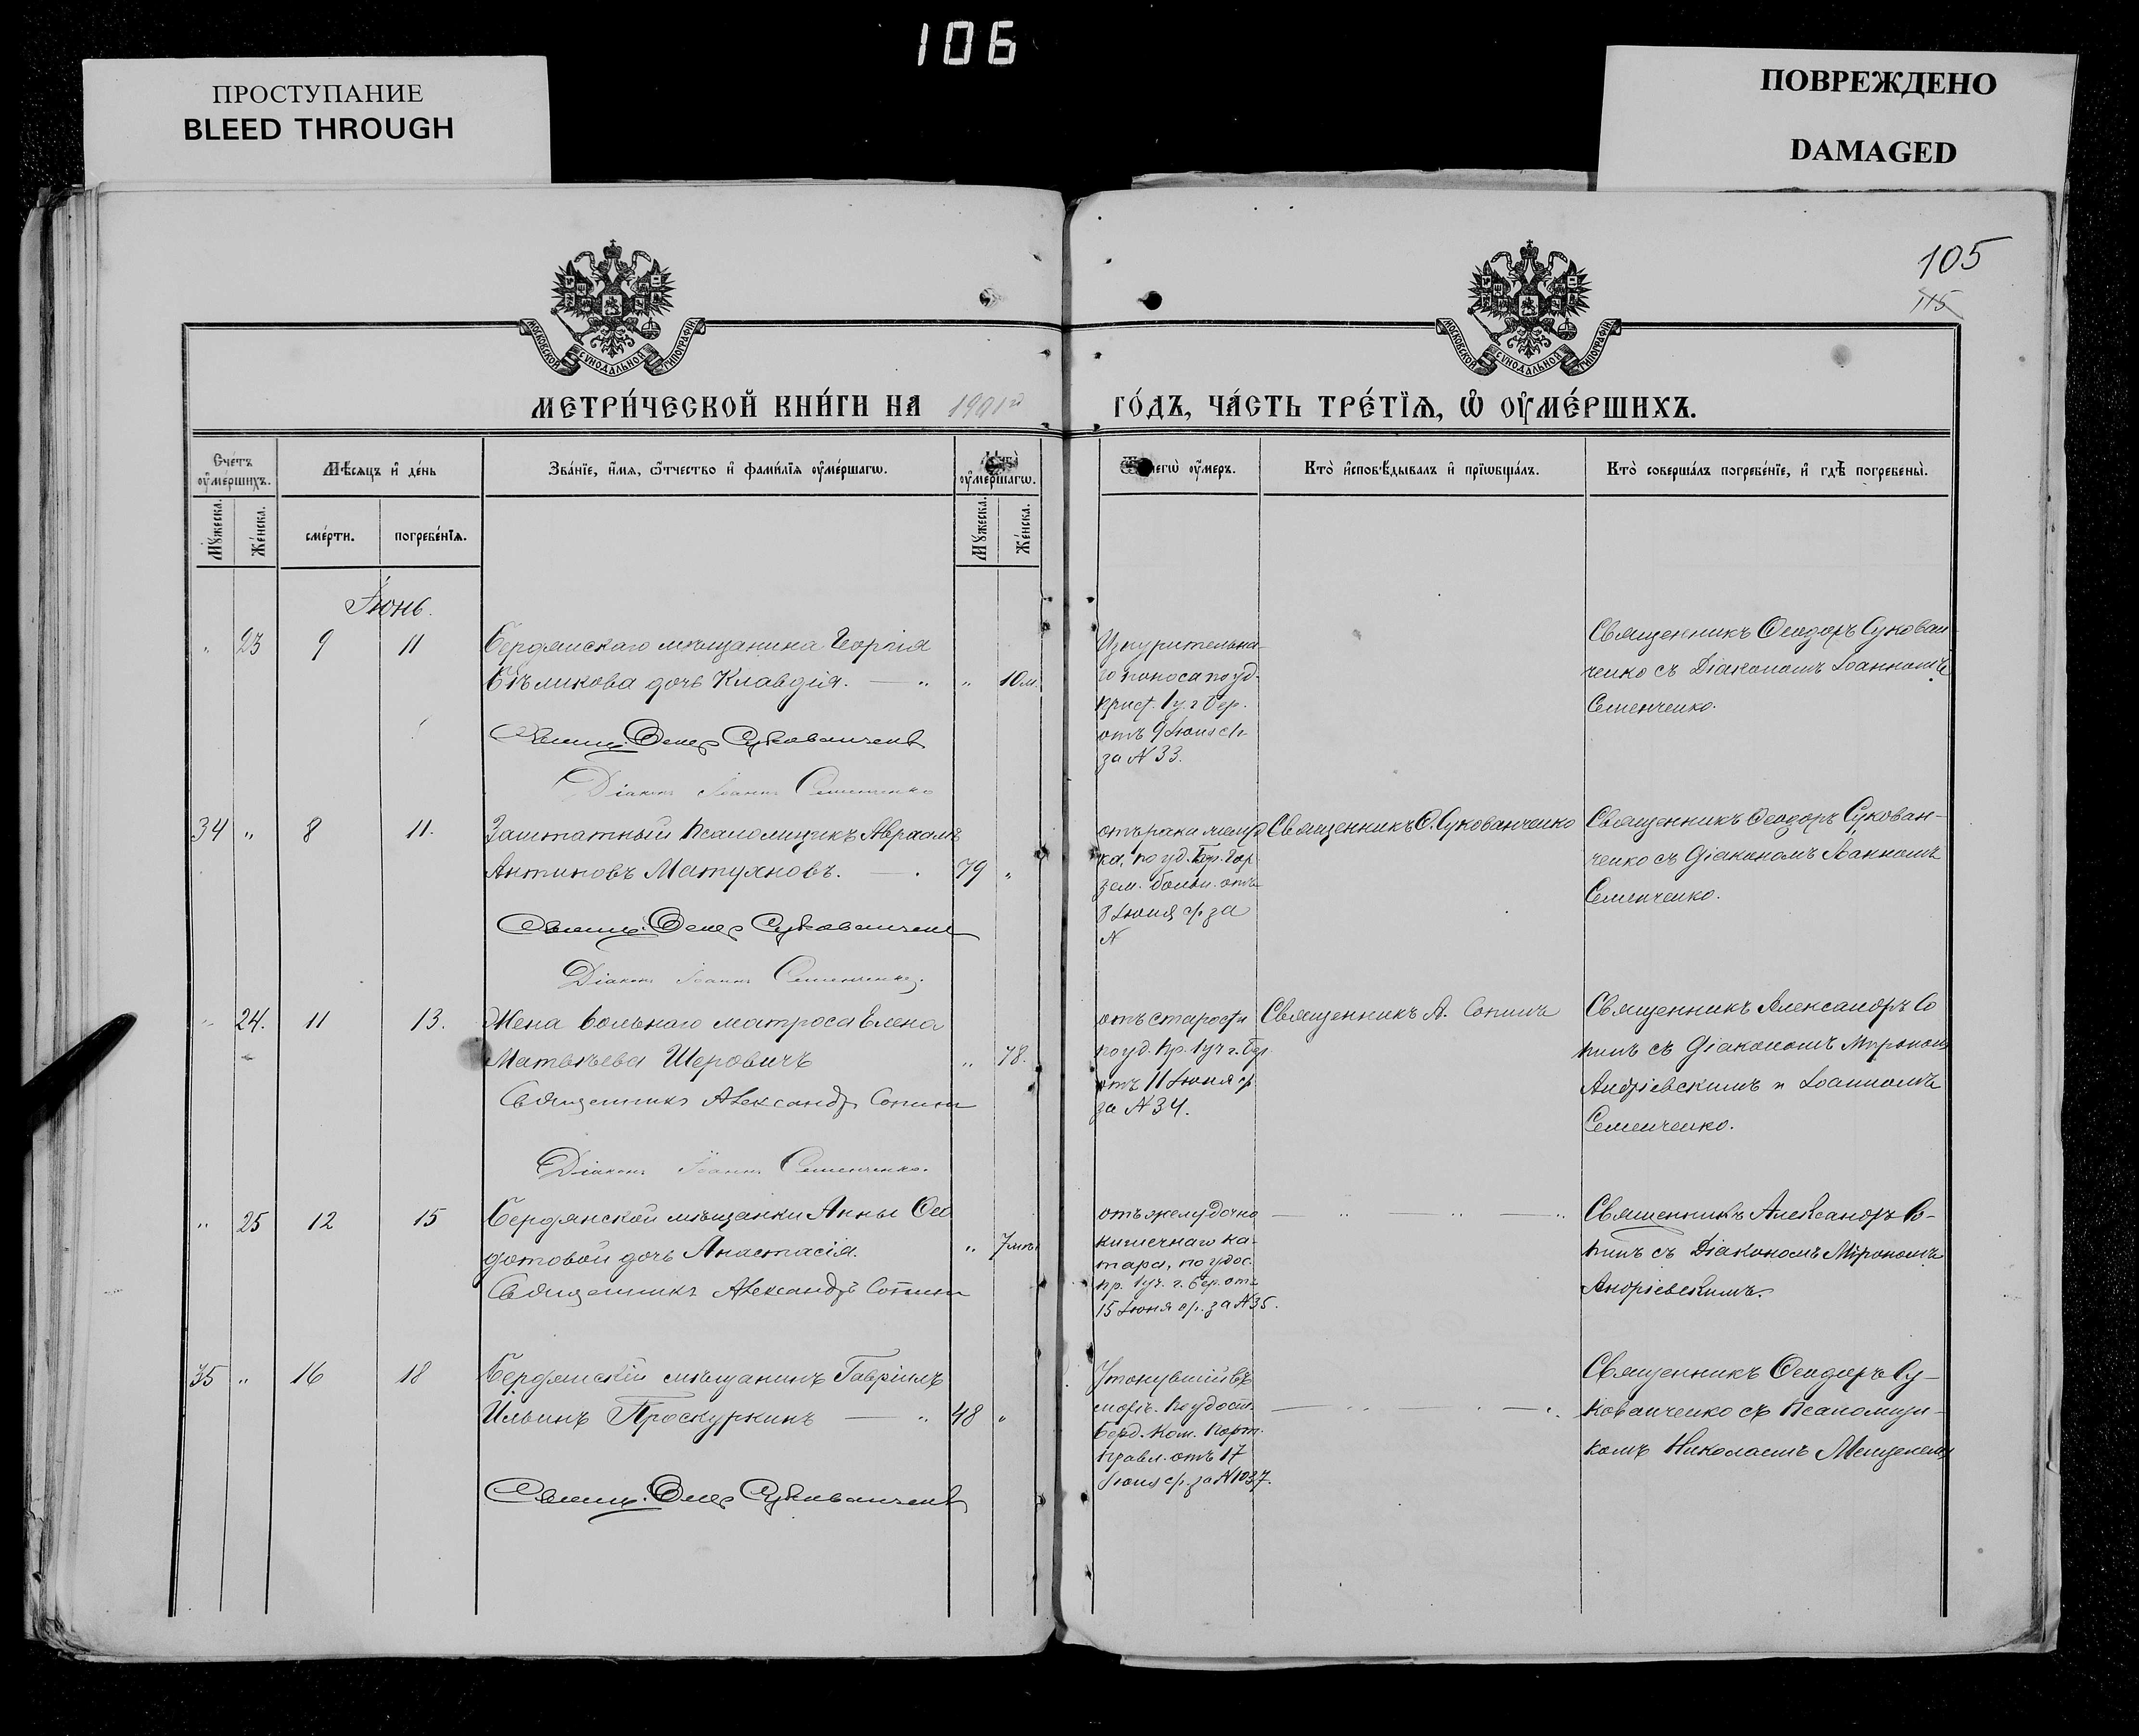 106
ПРОСТУПАНИЕ
BLEED THROUGH
ПОВРЕЖДЕНО
DAMAGED
105
115
МОСКОВСКОЙ СѴНОДАЛЬНОЙ ТИПОГРАФІИ
МОСКОВСКОЙ СѴНОДАЛЬНОЙ ТИПОГРАФІИ
МЕТРИ́ЧЕСКОЙ КНИ́ГИ НА 1901 й
ГО́ДЪ, ЧА́СТЬ ТРЕ́ТЇѦ, Ѽ ОУ҆МЕ́РШИХЪ.
Сче́тъ оу҆ме́ршихъ.
Мѣ́сѧцъ и҆ де́нь
Зва́нїе, и҆́мѧ, ѻ҆́тчество и҆ фами́лїѧ оу҆ме́ршагѡ.
оу҆ме́ршагѡ.
оу҆́меръ.
Кто̀ и҆сповѣ́дывалъ и҆ прїѡбща́лъ.
Кто̀ соверша́лъ погребе́нїе, и҆ гдѣ̀ погребены̀.
Мꙋ́жеска.
Же́нска.
сме́рти.
погребе́нїѧ.
Мꙋ́жеска.
Же́нска.
Іюнь.
" 23 9 11 Бердянскаго мѣщанина Георгія
Бѣликова дочь Клавдія. — " " 10 м.
Священ. Ѳеод Сукованченко
Діаконъ Іоаннъ Семенченко
Изнурительна-
го поноса по уд.
прист. 1 у. г. Бер.
отъ 9 Іюня с/г
за N 33.
Священникъ Ѳеодоръ Сукован
ченко съ Діакономъ Іоанномъ
Семенченко.
34 " 8 11. Заштатный Псаломщикъ Авраамъ
Антиповъ Матухновъ. — . 79 "
Священ. Ѳеод Сукованченко
Діаконъ Іоаннъ Семенченко.
отъ рака желуд
ка, по уд. Бер. Гор.
зем. больн. отъ
8 Іюня с/г за
N
Священникъ Ѳ. Сукованченко
Священникъ Ѳеодоръ Сукован-
ченко съ Діакономъ Іоанномъ
Семенченко.
" 24. 11 13. Жена вольнаго матроса Елена
Матвѣева Шеровичъ " 78.
Священникъ Александръ Сопинъ
Діаконъ Іоаннъ Семенченко.
отъ старости
по уд. пр. 1 уч. г. Бер
отъ 11 Іюня с/г
за N 34.
Священникъ А. Сопинъ
Священникъ Александръ Со
пинъ съ Діакономъ Мирономъ
Андріевскимъ и Іоанномъ
Семенченко.
" 25 12 15 Бердянской мѣщанки Анны Ѳео
дотовой дочь Анастасія. " 7 мѣс.
Священникъ Александръ Сопинъ
отъ желудочно
кишечнаго ка-
тара, по удос.
пр. 1 уч. г. Бер. отъ
15 Іюня с/г. за N 35.
Священникъ Александръ Со-
пинъ съ Діакономъ Мирономъ
Андріевскимъ.
35 " 16 18 Бердянскій мѣщанинъ Гавріилъ
Ильинъ Проскуркинъ — " 48 "
Священ. Ѳеод Сукованченко
Утонувшій въ
морѣ. По удост.
Берд. Ком. Порт.
Правл. отъ 17
Іюня с/г. за N 1037.
Священникъ Ѳеодоръ Су-
кованченко съ Псаломщи-
комъ Николаемъ